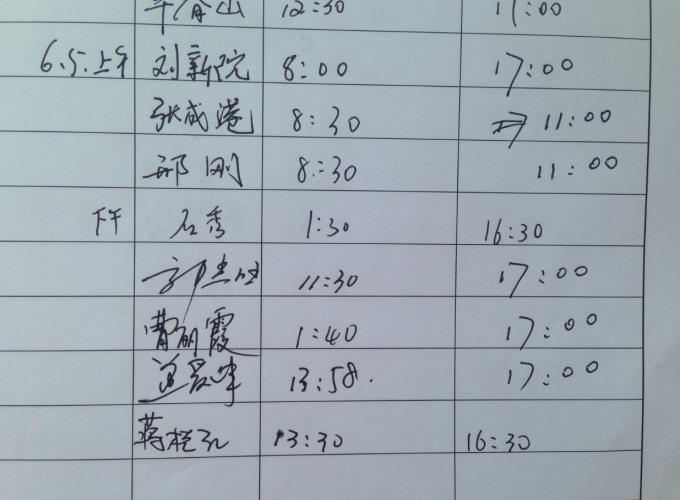 12:30 17:00
6.5.上午 刘新院 8:00 17:00
张成港 8:30 11:00
邢刚 8:30 11:00
下午 石秀 1:30 16:30
11:30 17:00
曹丽霞 1:40 17:00
13:58. 17:00
蒋 13:30 16:30